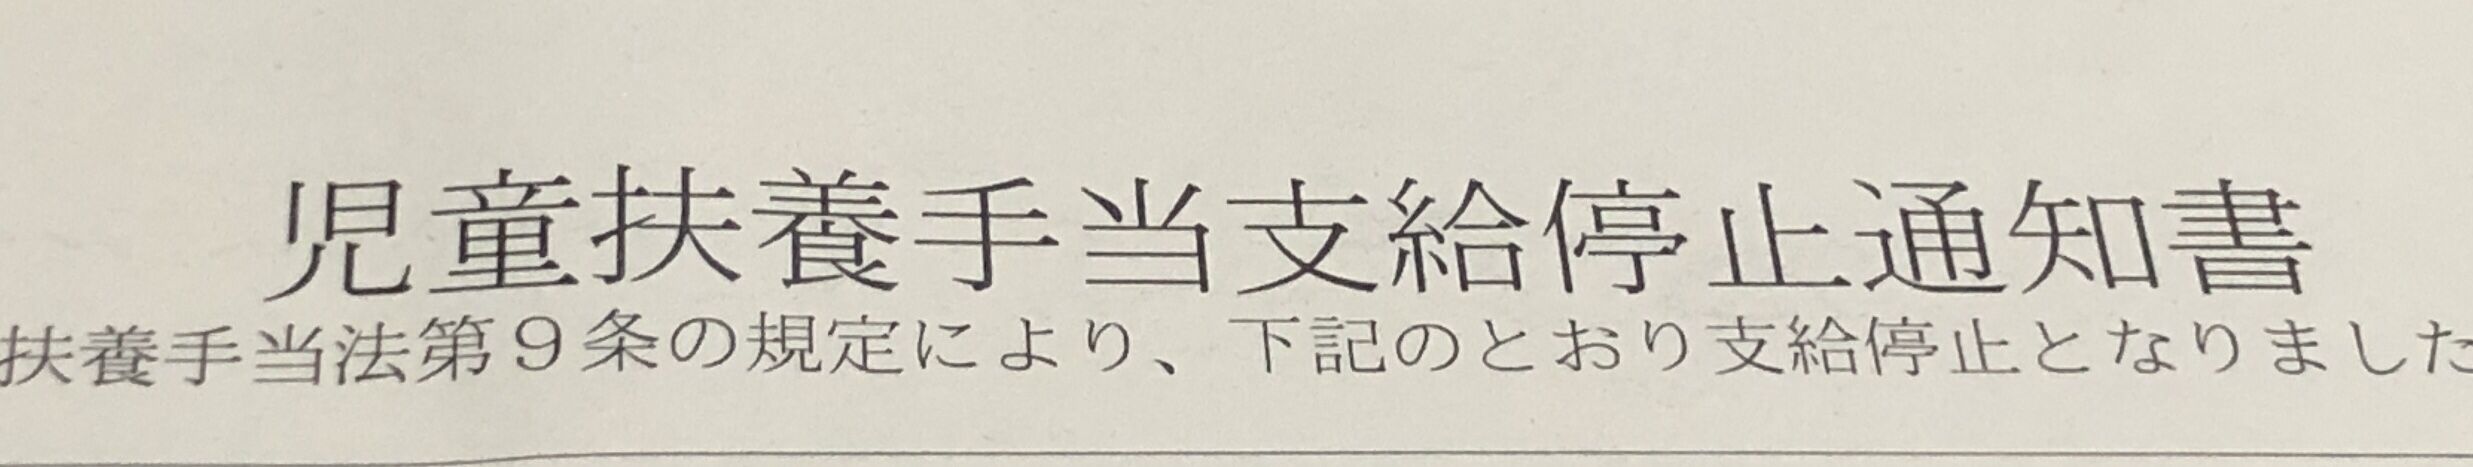 児童扶養手当支給停止通知書
扶養手当法第９条の規定により、下記のとおり支給停止となりました